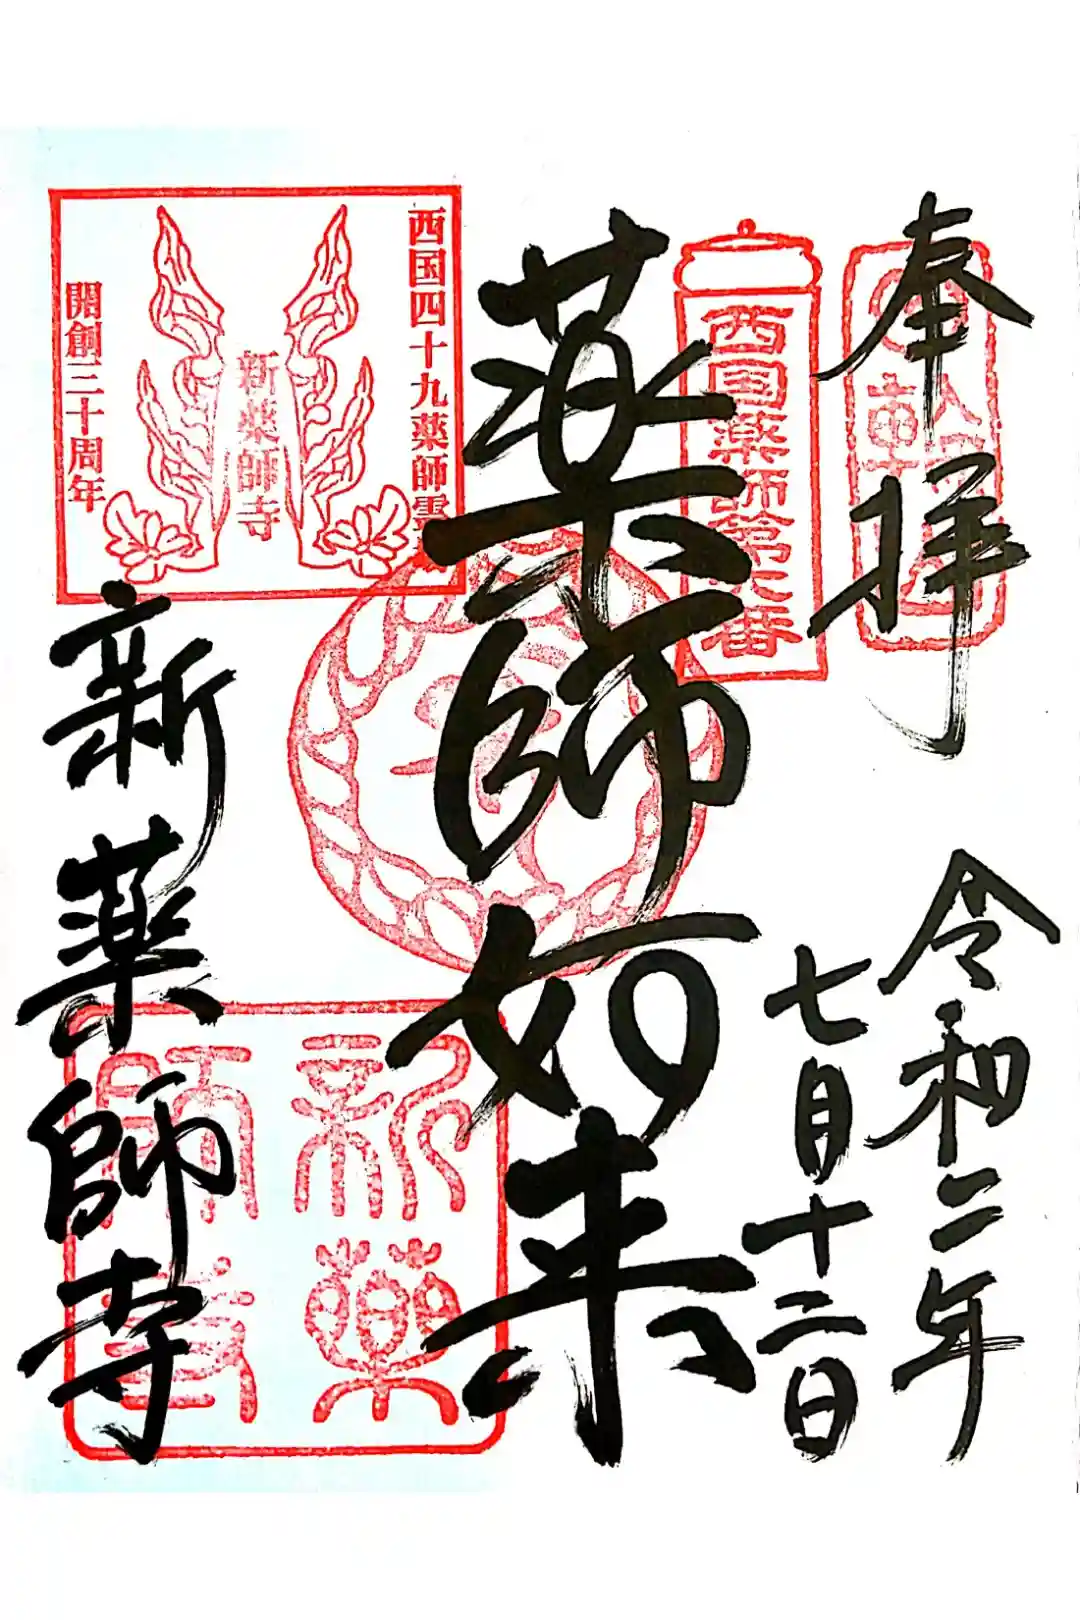 奉拝
令和二年
七月十二日
西国薬師第六番
薬師如来
西国四十九薬師霊
新薬師寺
開創三十周年
新薬師寺
新薬師寺